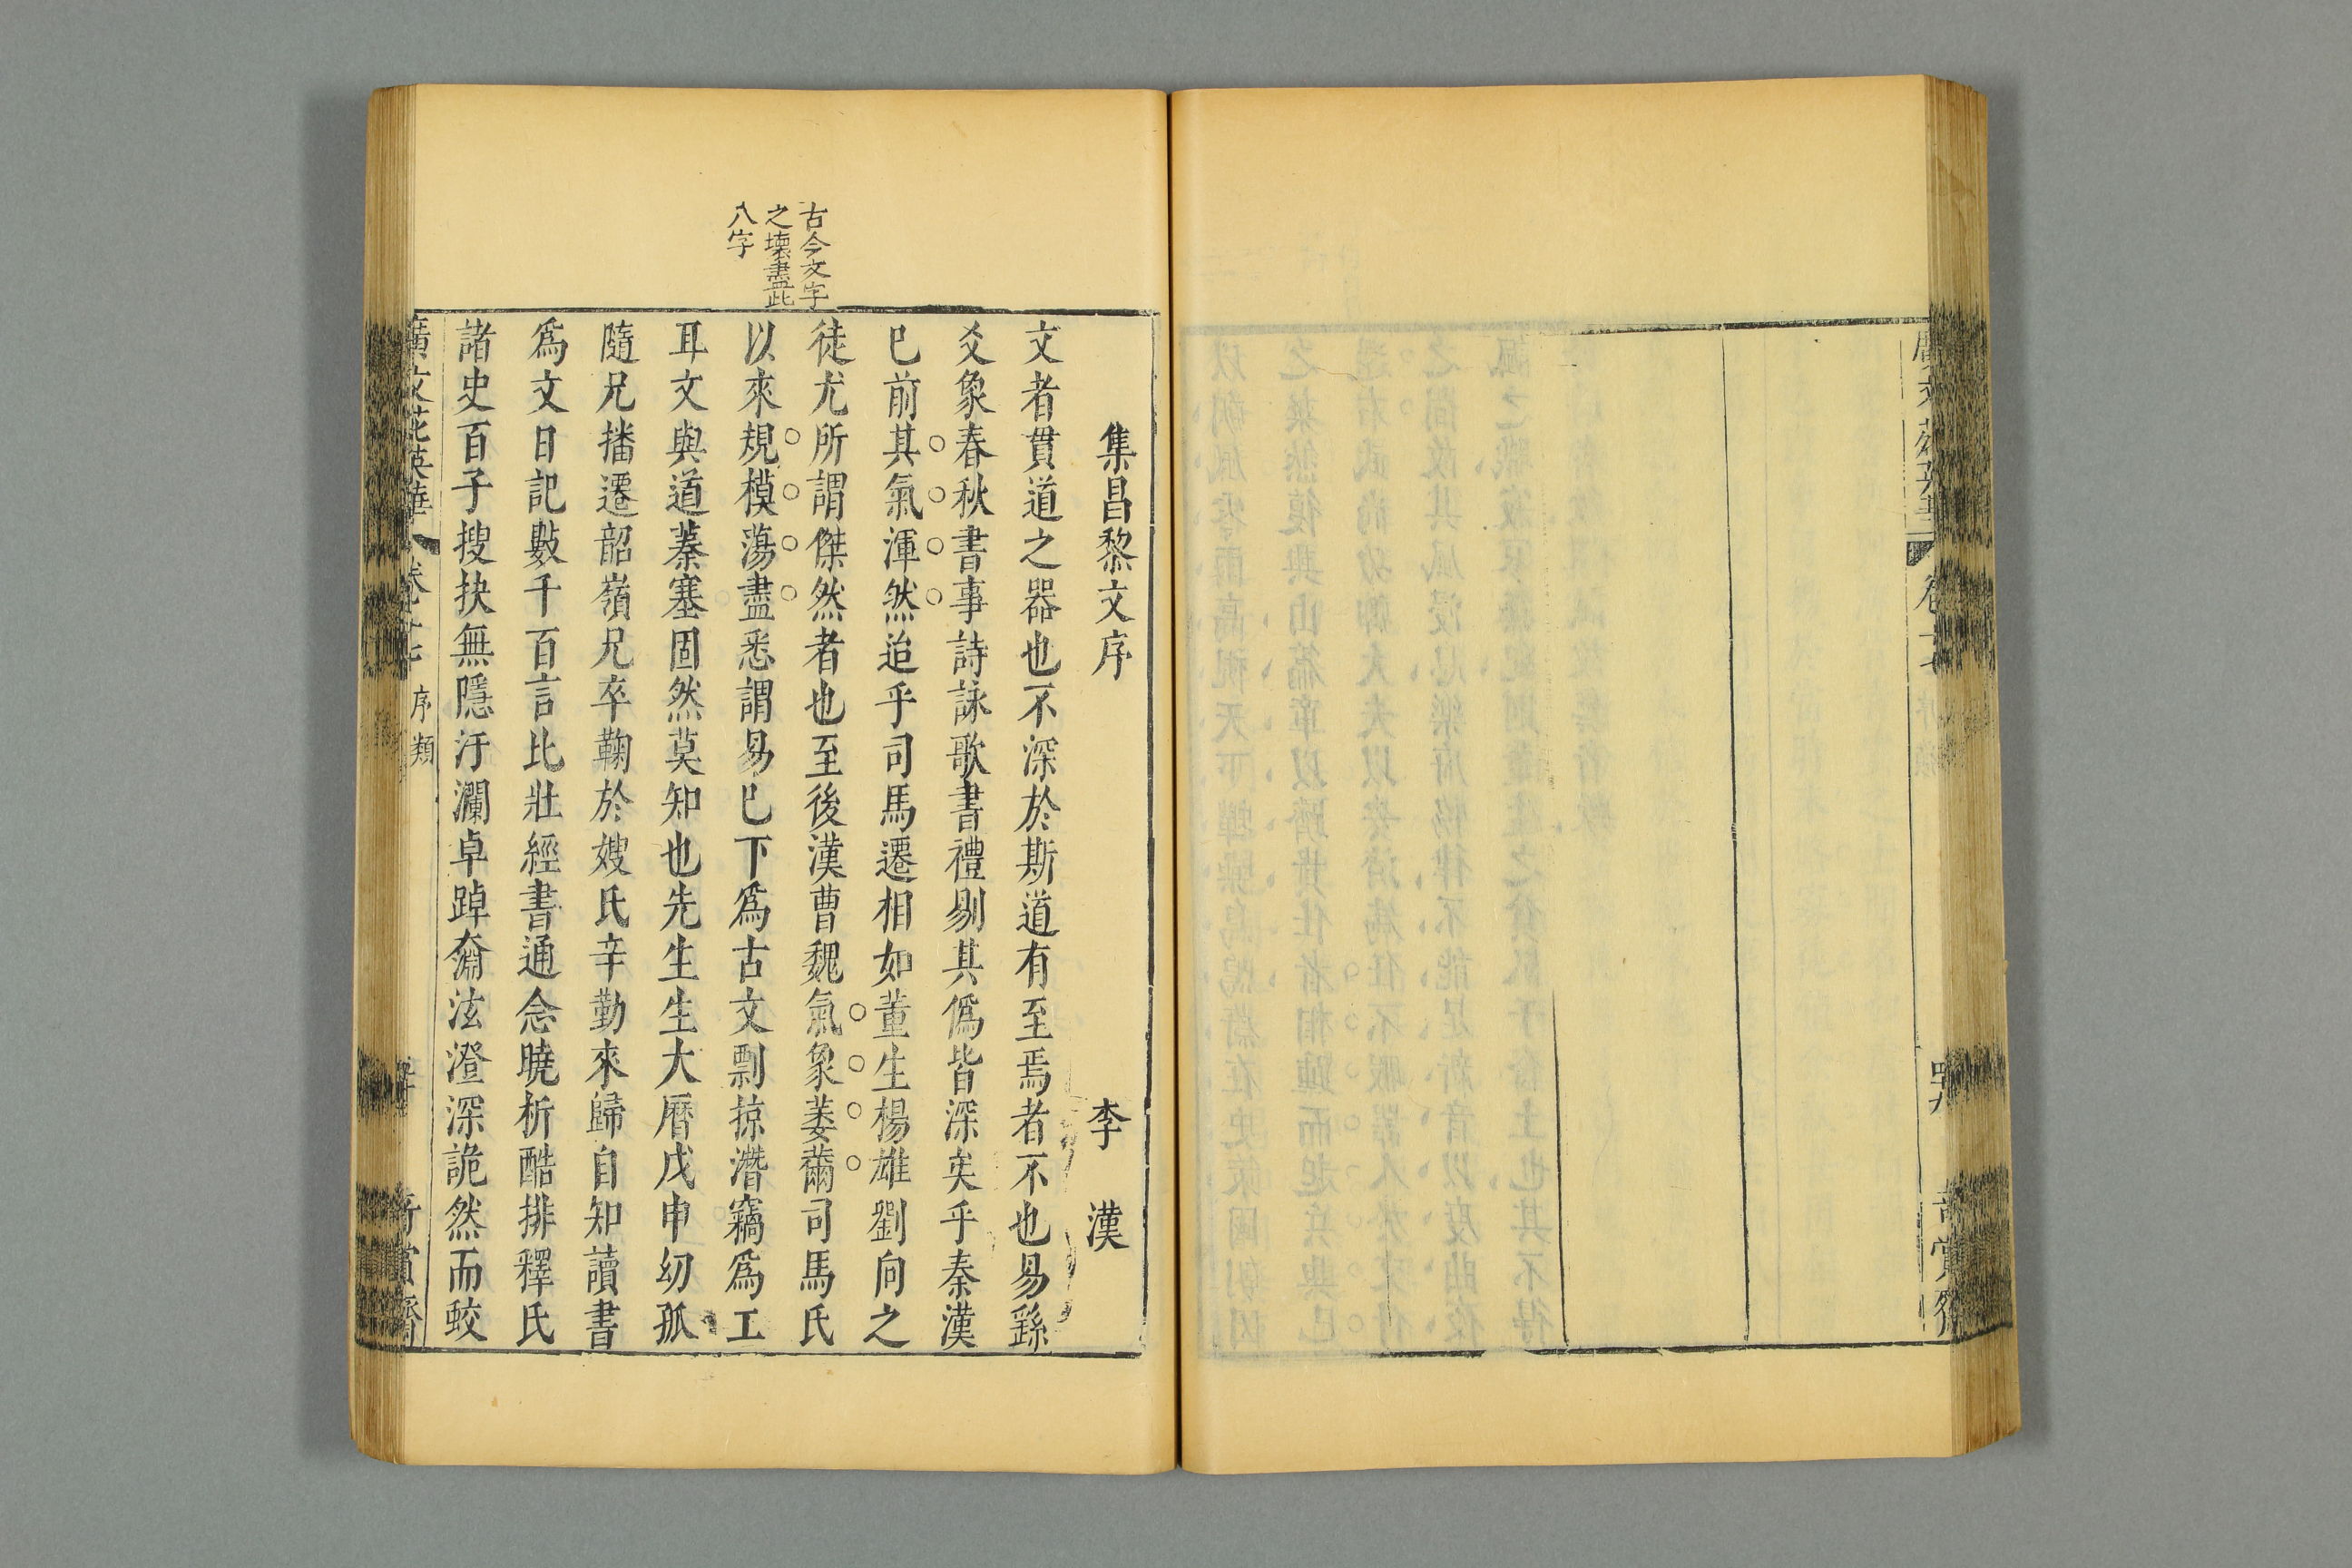 集昌黎文序 李漢
文者貫道之器也不深於斯道有至焉者不也易繇
爻象春秋書事詩詠歌書禮剔其僞皆深矣乎秦漢
已前其氣渾然迨乎司馬遷相如董生楊雄劉向之
徒尤所謂傑然者也至後漢曹魏氣象萎薾司馬氏
以來規模蕩盡悉謂易已下爲古文剽掠潛竊爲工
耳文與道蓁塞固然莫知也先生生大曆戊申幼孤
隨兄播遷韶嶺兄卒鞠於嫂氏辛勤來歸自知讀書
爲文日記數千百言比壯經書通念曉析酷排釋氏
諸史百子搜抉無隱汗瀾卓踔奫泫澄深詭然而蛟
古今文字
之壞盡此
八字
廣文苑英華 卷十七 序類 奇賞齋